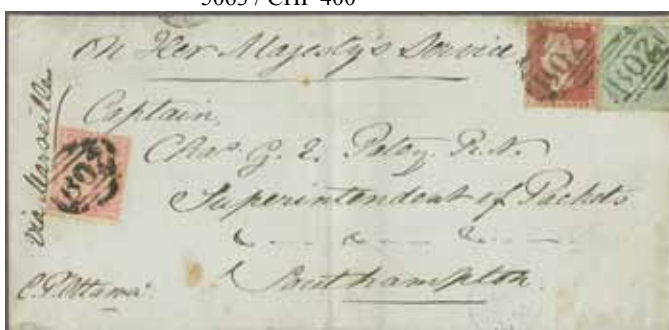 5063 / CHF 400
On Her Majesty's Service
B02
Via Marseille
Captain,
Chas. G. E. Patey R.N.
Superintendent of Packets
Southampton.
B02
Ottawa